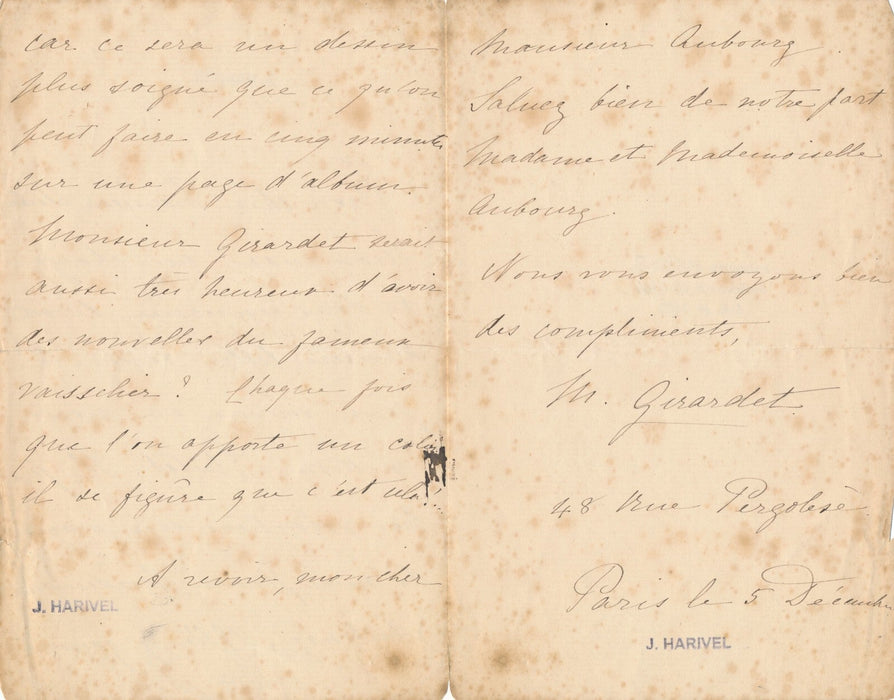 car ce sera un dessin
plus soigné que ce qu'on
peut faire en cinq minutes
sur une page d'album.
Monsieur Girardet serait
aussi très heureux d'avoir
des nouvelles du fameux
vaisselier ? Chaque fois
que l'on apporte un colis
il se figure que c'est cela!..
A revoir, mon cher
J. HARIVEL
Monsieur Aubourg.
Saluez bien de notre part
Madame et Mademoiselle
Aubourg.
Nous vous envoyons bien
des compliments,
M. Girardet
48 Rue Pergolèse
Paris le 5 Décembre
J. HARIVEL